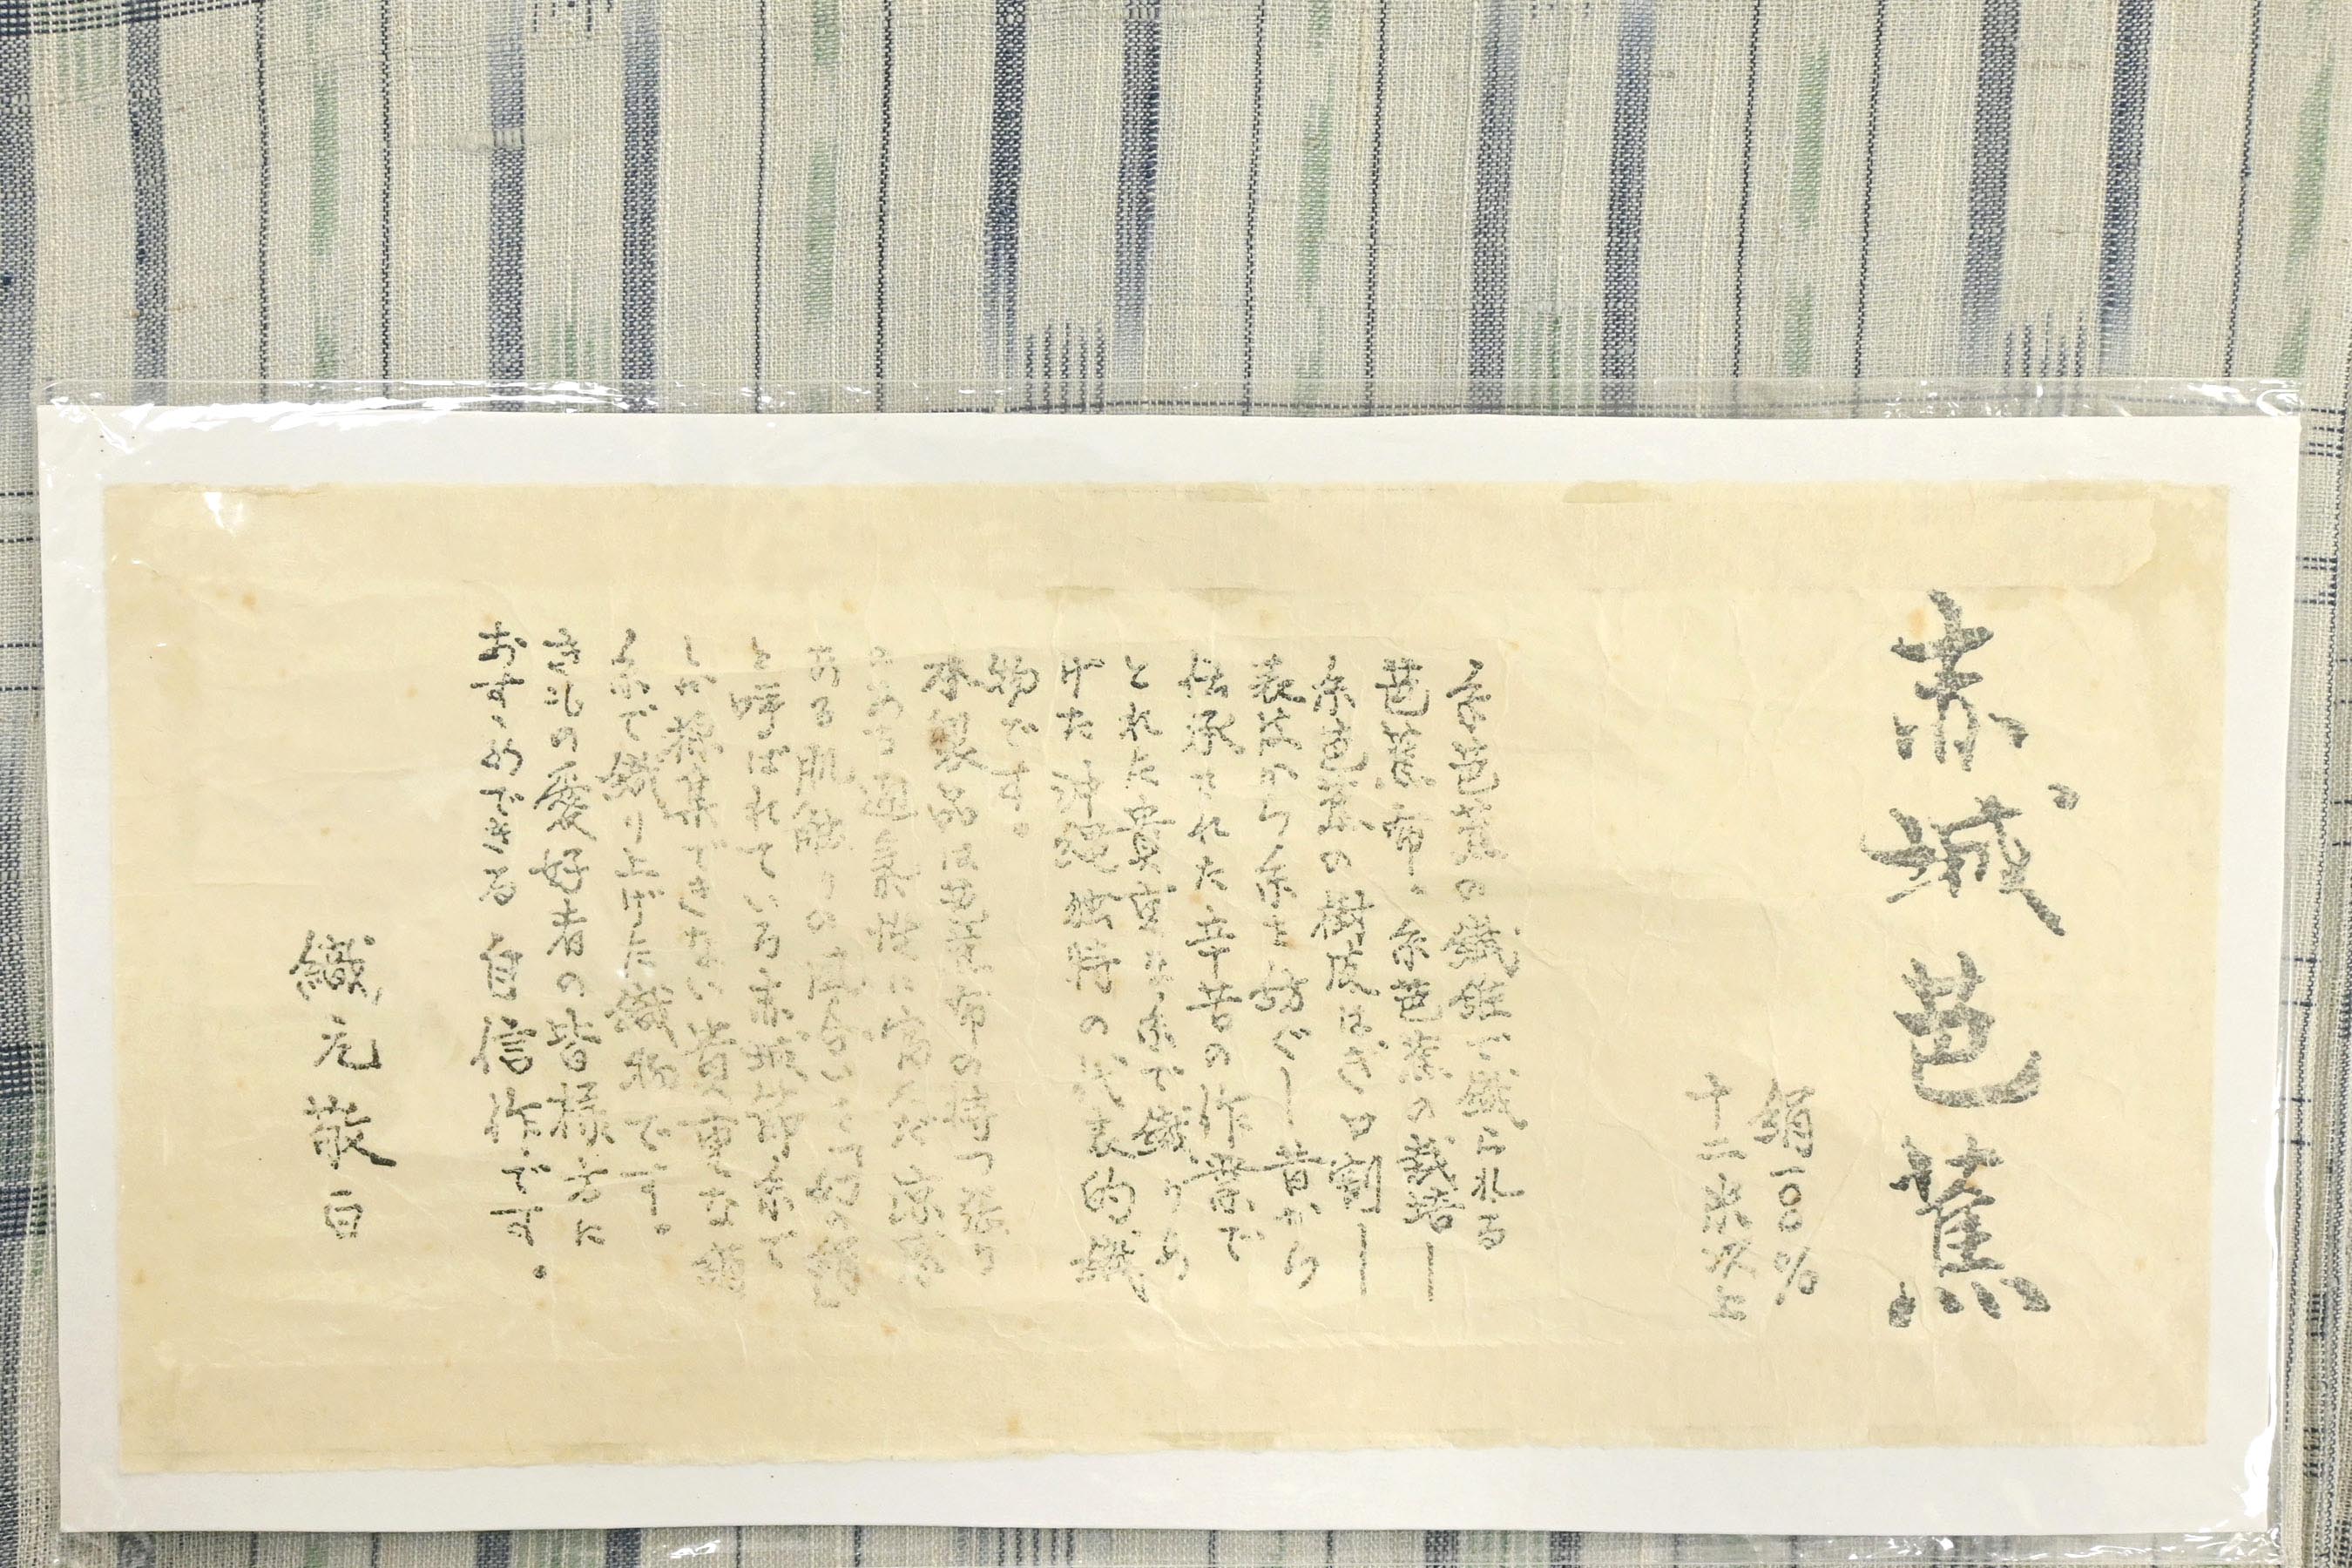 赤城芭蕉
絹一〇〇%
十二
糸芭蕉の繊維で織られる
芭蕉布。糸芭蕉の栽培―
糸芭蕉の樹皮はぎ・口割―
表皮から糸を紡ぐ―昔から
伝承された辛苦の作業で
とれた貴重な糸で織りあ
げた沖縄独特の代表的織
物です。
本製品は芭蕉布の持つ張り
のある通気性に富んだ涼感
ある肌触りの風合いをこの絹
と呼ばれている赤城節糸で
しか採集できない貴重な絹
糸で織り上げた織物です。
きもの愛好者の皆様方に
おすゝめできる自信作です。
織元敬白